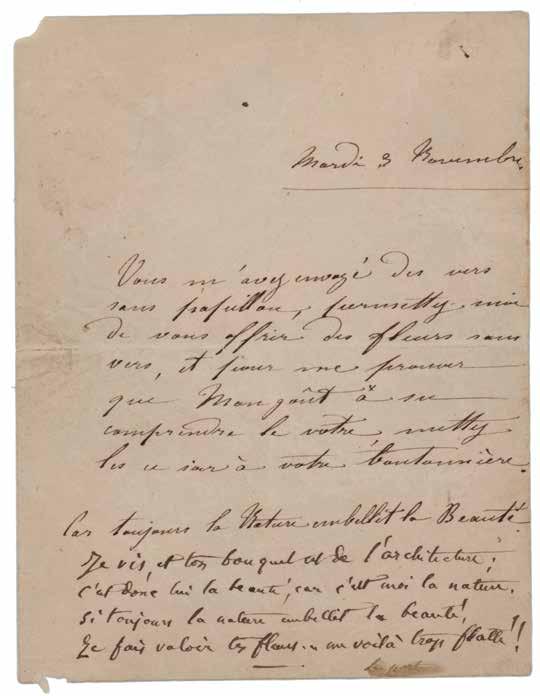 Mardi 3 Novembre.
Vous m'avez envoyé des vers
sans papillon, permettez moi
de vous offrir des fleurs sans
vers, et pour me prouver
que Mon goût à su
comprendre le votre, mettez
les ce soir à votre boutonnière.
Car toujours la Nature embellit la Beauté.
Je vis, et ton bouquet est de l'architecture;
C'est donc lui la beauté, car c'est moi la nature.
Si toujours la nature embellit la beauté!
Je fais valoir tes fleurs.. me voilà trop flatté!!